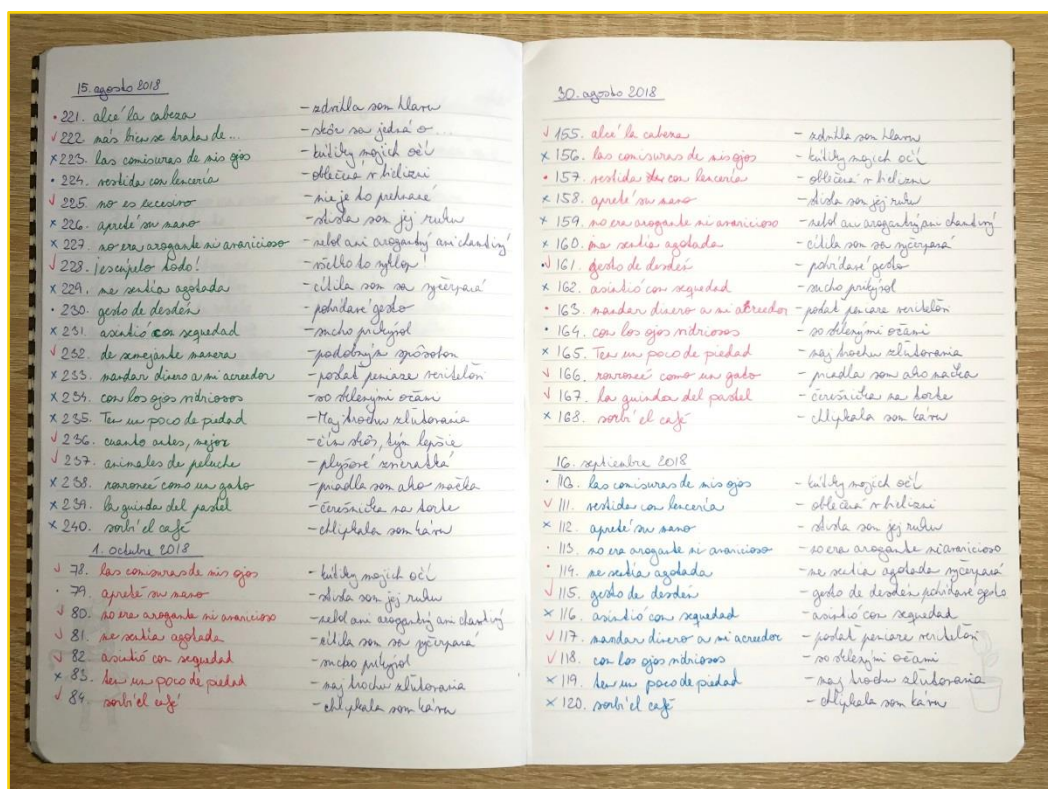 15. agosto 2018
• 221. alcé la cabeza - zdvihla som hlavu
✓ 222. más bien se trata de... - skôr sa jedná o...
× 223. las comisuras de mis ojos - kútiky mojich očí
• 224. vestida con lencería - oblečená v bielizni
✓ 225. no es excesivo - nie je to prehnané
× 226. apreté su mano - stisla som jej ruku
× 227. no era arogante ni avaricioso - nebol ani arogantný ani chamtivý
✓ 228. ¡escúpelo todo! - všetko to vyklop!
× 229. me sentía agotada - cítila som sa vyčerpaná
• 230. gesto de desdén - pohŕdavé gesto
× 231. asintió con sequedad - sucho prikývol
✓ 232. de semejante manera - podobným spôsobom
× 233. mandar dinero a mi acreedor - poslať peniaze veriteľovi
× 234. con los ojos vidriosos - so sklenými očami
× 235. Ten un poco de piedad - Maj trochu zľutovania
✓ 236. cuanto antes, mejor - čím skôr, tým lepšie
✓ 237. animales de peluche - plyšové zvieratká
× 238. ronroneé como un gato - priadla som ako mačka
× 239. la guinda del pastel - čerešnička na torte
× 240. sorbí el café - chlipkala som kávu
1. octubre 2018
✓ 78. las comisuras de mis ojos - kútiky mojich očí
• 79. apreté su mano - stisla som jej ruku
✓ 80. no era arogante ni avaricioso - nebol ani arogantný ani chamtivý
✓ 81. me sentía agotada - cítila som sa vyčerpaná
✓ 82. asintió con sequedad - sucho prikývol
× 83. ten un poco de piedad - maj trochu zľutovania
✓ 84. sorbí el café - chlipkala som kávu
30. agosto 2018
✓ 155. alcé la cabeza - zdvihla som hlavu
× 156. las comisuras de mis ojos - kútiky mojich očí
• 157. vestida con lencería - oblečená v bielizni
× 158. apreté su mano - stisla som jej ruku
× 159. no era arogante ni avaricioso - nebol ani arogantný ani chamtivý
× 160. me sentía agotada - cítila som sa vyčerpaná
✓ 161. gesto de desdén - pohŕdavé gesto
× 162. asintió con sequedad - sucho prikývol
• 163. mandar dinero a mi acreedor - poslať peniaze veriteľovi
• 164. con los ojos vidriosos - so sklenými očami
× 165. Ten un poco de piedad - maj trochu zľutovania
✓ 166. ronroneé como un gato - priadla som ako mačka
✓ 167. la guinda del pastel - čerešnička na torte
× 168. sorbí el café - chlipkala som kávu
16. septiembre 2018
• 110. las comisuras de mis ojos - kútiky mojich očí
✓ 111. vestida con lencería - oblečená v bielizni
× 112. apreté su mano - stisla som jej ruku
• 113. no era arogante ni avaricioso - no era arogante ni avaricioso
• 114. me sentía agotada - me sentía agotada vyčerpaná
✓ 115. gesto de desdén - gesto de desdén pohŕdavé gesto
× 116. asintió con sequedad - asintió con sequedad
✓ 117. mandar dinero a mi acreedor - poslať peniaze veriteľovi
✓ 118. con los ojos vidriosos - so sklenými očami
× 119. ten un poco de piedad - maj trochu zľutovania
× 120. sorbí el café - chlipkala som kávu